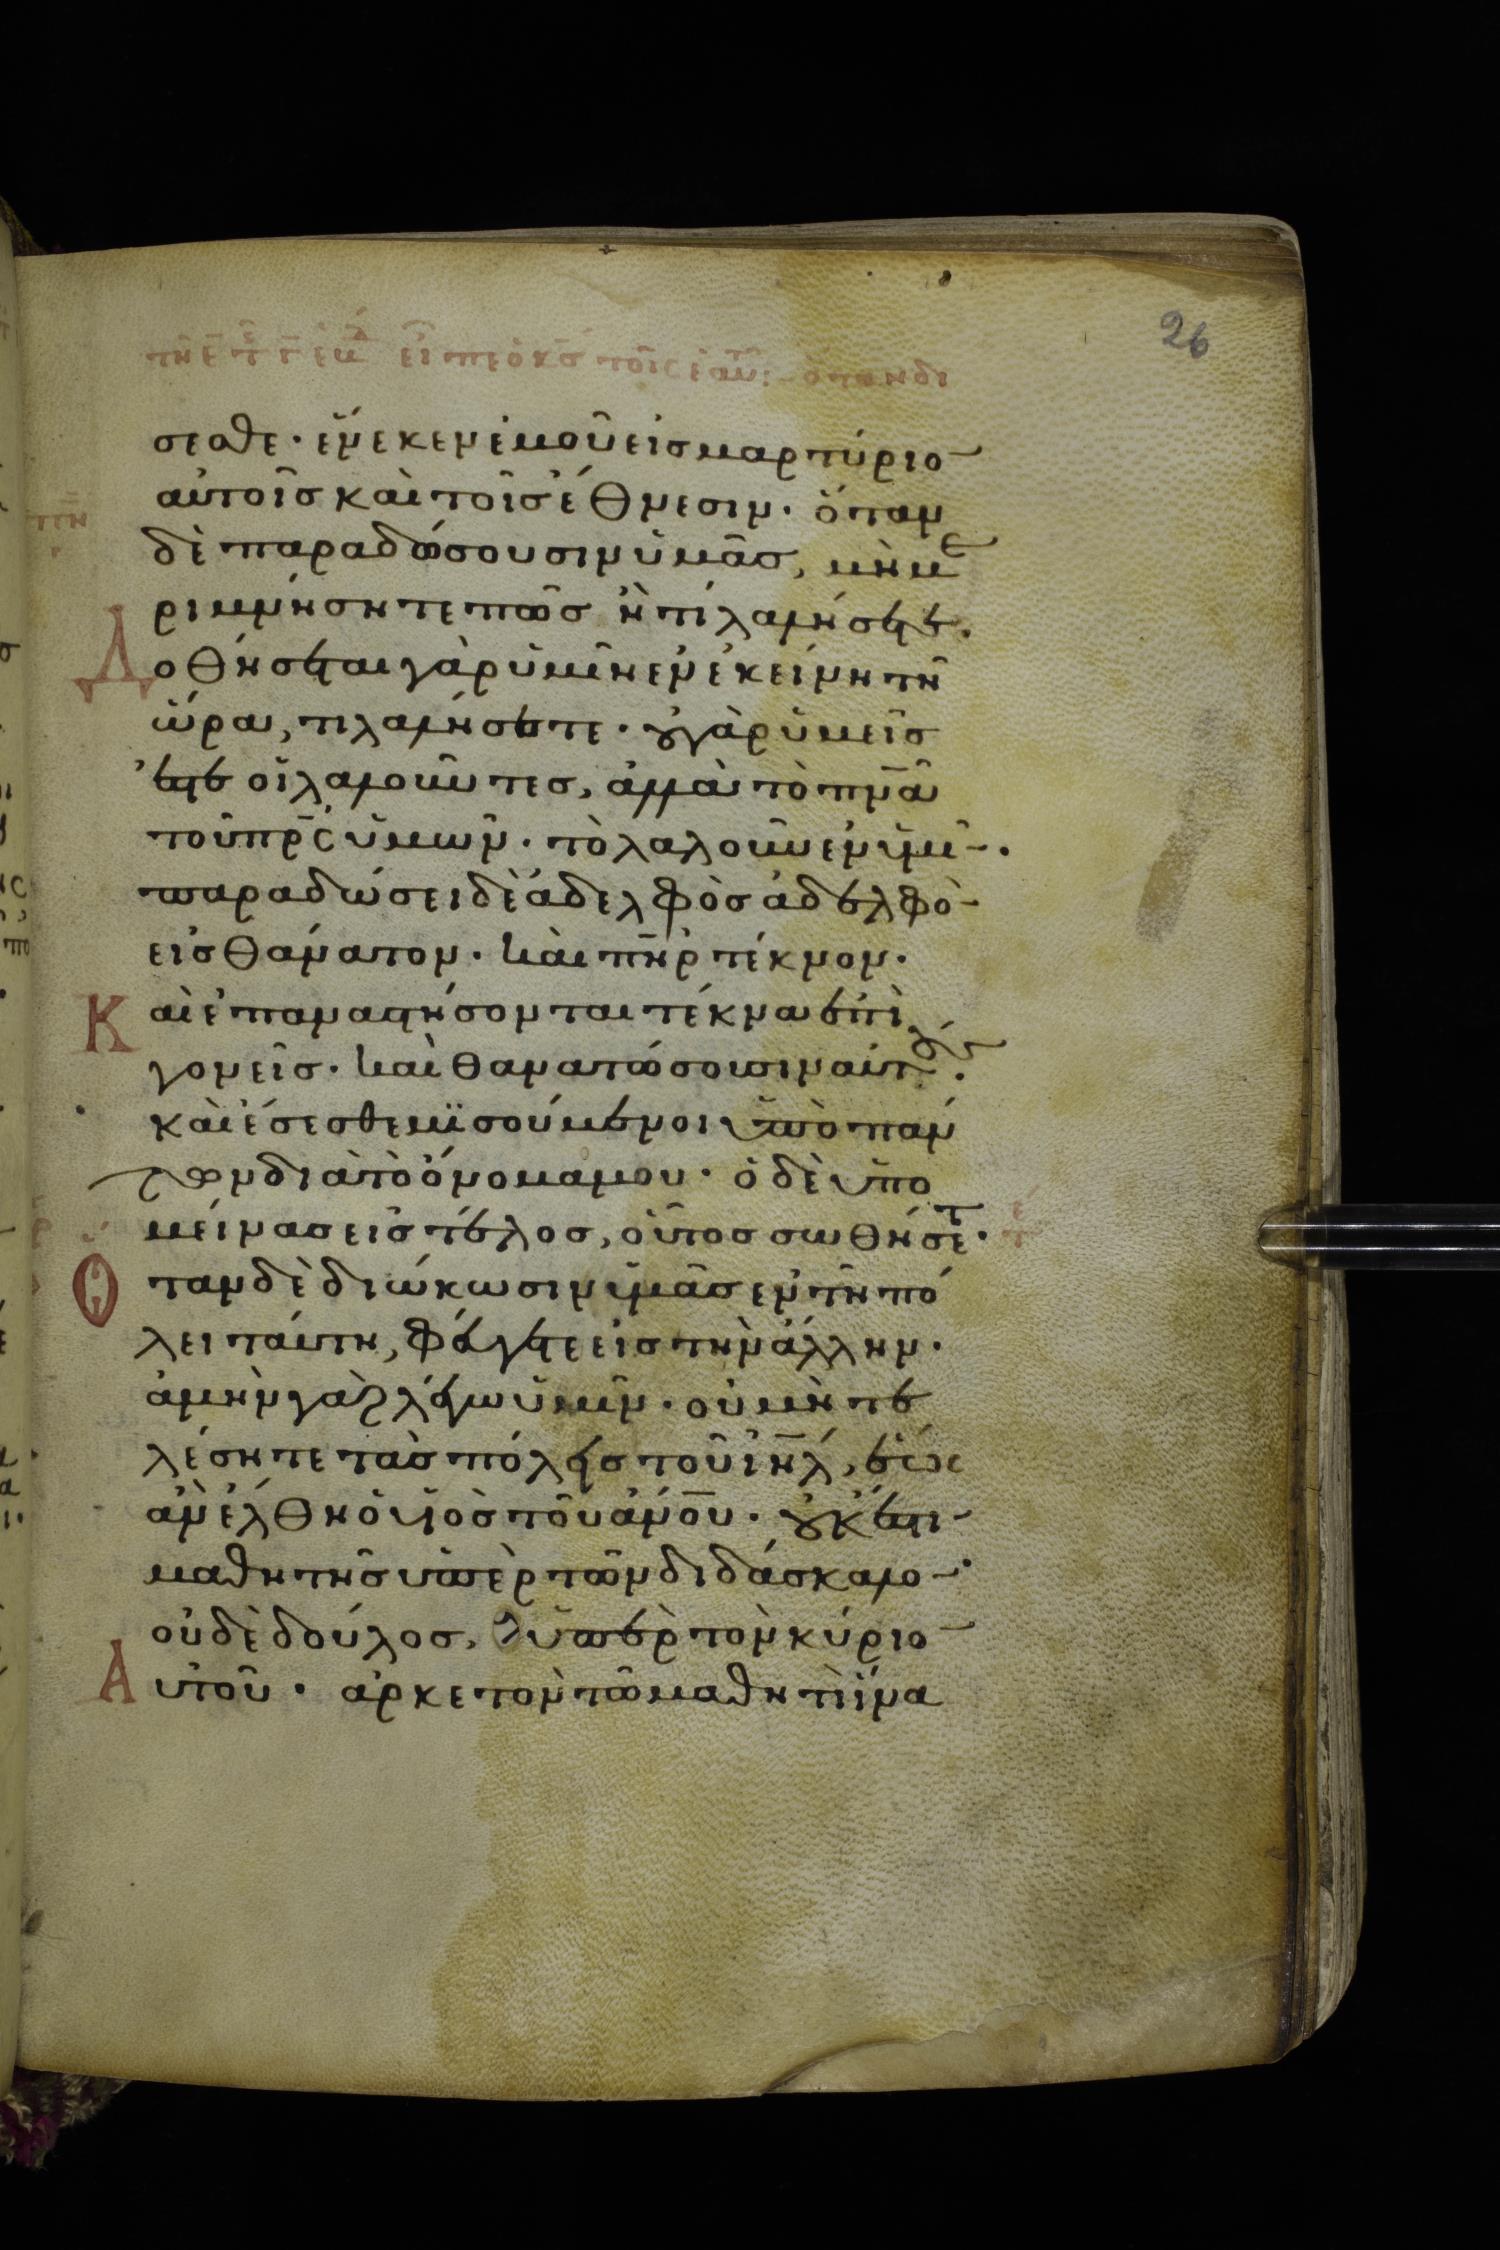 26
τῆ ε τῆς γ ἑβδ εἶπεν ὁ κς τοῖς ἑαυτοῦ
σεσθε· ἕνεκεν ἐμοῦ εἰσ μαρτύριο
αὐτοῖσ καὶ τοῖσ ἔθνεσιν· ὅταν
δὲ παραδώσουσιν ὑμᾶσ, μὴ με
ριμνήσητε πῶσ ἢ τί λαλήσητε.
Δοθήσεται γὰρ ὑμῖν ἐν ἐκείνη τῆ
ὥρα, τι λαλήσετε· οὐ γὰρ ὑμεῖσ
ἐστε οἱ λαλοῦντεσ, ἀλλὰ τὸ πνᾶ
τοῦ πρσ ὑμῶν· τὸ λαλοῦν ἐν ὑμῖ·
παραδώσει δὲ ἀδελφὸσ ἀδελφὸ
εἰσ θάνατον· καὶ πηρ τέκνον·
Καὶ ἐπαναστήσονται τέκνα ἐπὶ
γονεῖσ· καὶ θανατώσουσιν αὐτούσ·
καὶ ἔσεσθε μισούμενοι ὑπὸ πάν
των διὰ τὸ ὄνομα μου· ὁ δὲ ὑπο
μείνασ εἰσ τέλοσ, οὗτοσ σωθήσετ·
Ὅταν δὲ διώκωσιν ὑμᾶσ ἐν τῆ πό
λει ταύτη, φεύγετε εἰσ τὴν ἄλλην·
ἀμὴν γὰρ λέγω ὑμῖν· οὐ μὴ τε
λέσητε τὰσ πόλεισ τοῦ ιηλ, ἕωσ
ἂν ἔλθη ὁ υἱὸσ τοῦ ανου· οὐκ ἔστι
μαθητὴσ ὑπὲρ τῶν διδάσκαλο·
οὐδὲ δούλοσ, ὑπὲρ τὸν κύριο
Αὐτοῦ· ἀρκετὸν τῶ μαθητῆ ἵνα